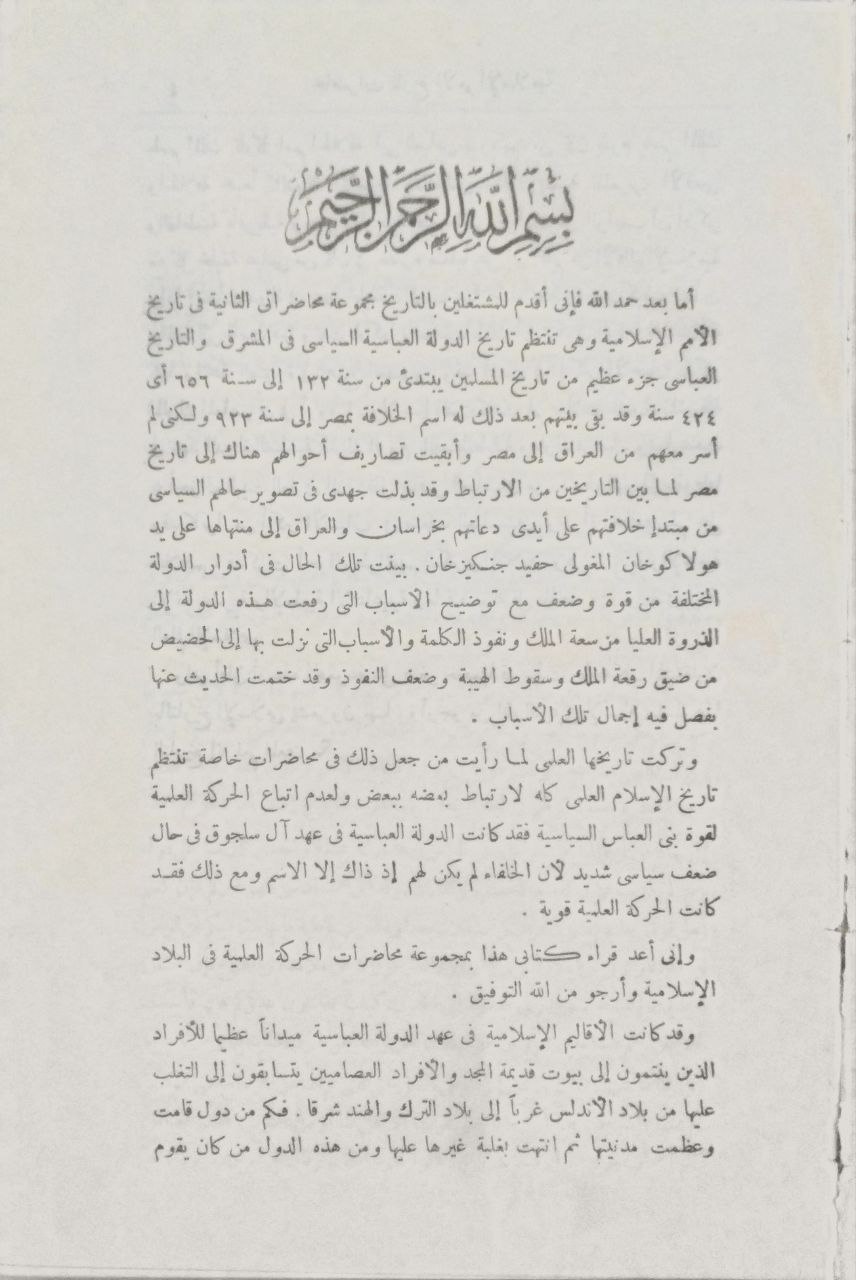 بسم الله الرحمن الرحيم
أما بعد حمد الله فإنى أقدم للمشتغلين بالتاريخ مجموعة محاضراتى الثانية فى تاريخ
الأمم الإسلامية وهى تنتظم تاريخ الدولة العباسية السياسى فى المشرق والتاريخ
العباسى جزء عظيم من تاريخ المسلمين يبتدئ من سنة ١٣٢ إلى سنة ٦٥٦ أى
٤٢٤ سنة وقد بقى بيتهم بعد ذلك له اسم الخلافة بمصر إلى سنة ٩٢٣ ولكنى لم
أسر معهم من العراق إلى مصر وأبقيت تصاريف أحوالهم هناك إلى تاريخ
مصر لما بين التاريخين من الارتباط وقد بذلت جهدى فى تصوير حالهم السياسى
من مبتدإ خلافتهم على أيدى دعاتهم بخراسان والعراق إلى منتهاها على يد
هولاكوخان المغولى حفيد جنكيزخان . بينت تلك الحال فى أدوار الدولة
المختلفة من قوة وضعف مع توضيح الأسباب التى رفعت هذه الدولة إلى
الذروة العليا من سعة الملك ونفوذ الكلمة والأسباب التى نزلت بها إلى الحضيض
من ضيق رقعة الملك وسقوط الهيبة وضعف النفوذ وقد ختمت الحديث عنها
بفصل فيه إجمال تلك الأسباب .
وتركت تاريخها العلمى لما رأيت من جعل ذلك فى محاضرات خاصة تنتظم
تاريخ الإسلام العلمى كله لارتباط بعضه ببعض ولعدم اتباع الحركة العلمية
لقوة بنى العباس السياسية فقد كانت الدولة العباسية فى عهد آل سلجوق فى حال
ضعف سياسى شديد لأن الخلفاء لم يكن لهم إذ ذاك إلا الاسم ومع ذلك فقد
كانت الحركة العلمية قوية .
وإنى أعد قراء كتابى هذا بمجموعة محاضرات الحركة العلمية فى البلاد
الإسلامية وأرجو من الله التوفيق .
وقد كانت الأقاليم الإسلامية فى عهد الدولة العباسية ميداناً عظيما للأفراد
الذين ينتمون إلى بيوت قديمة المجد والأفراد العصاميين يتسابقون إلى التغلب
عليها من بلاد الأندلس غرباً إلى بلاد الترك والهند شرقا . فكم من دول قامت
وعظمت مدنيتها ثم انتهت بغلبة غيرها عليها ومن هذه الدول من كان يقوم